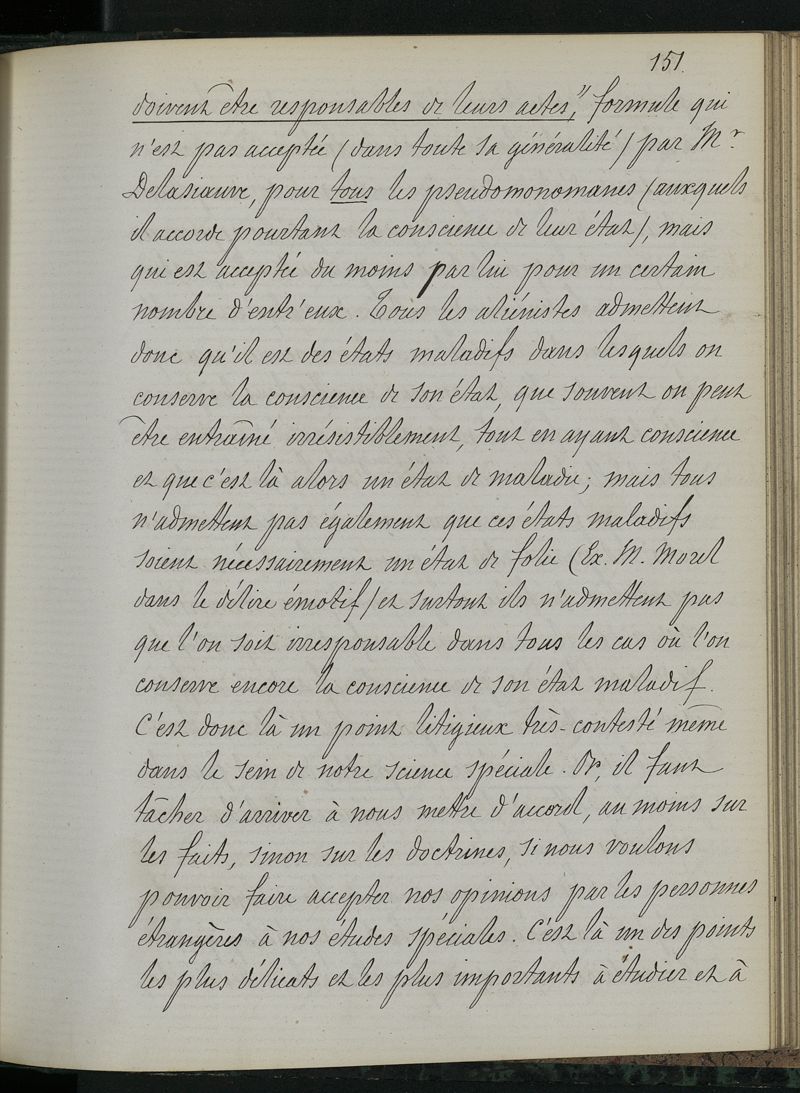 151
doivent être responsables de leurs actes," formule qui
n'est pas acceptée (dans toute sa généralité) par Mr
Delasiauve, pour tous les pseudomonomanes (auxquels
il accorde pourtant la conscience de leur état), mais
qui est acceptée du moins par lui pour un certain
nombre d'entr'eux. Tous les aliénistes admettent
donc qu'il est des états maladifs dans lesquels on
conserve la conscience de son état, que souvent on peut
être entraîné irrésistiblement, tout en ayant conscience
et que c'est là alors un état de maladie; mais tous
n'admettent pas également que ces états maladifs
soient nécessairement un état de folie (Ex. M. Morel
dans le délire émotif) et surtout ils n'admettent pas
que l'on soit irresponsable dans tous les cas où l'on
conserve encore la conscience de son état maladif.
C'est donc là un point litigieux très-contesté même
dans le sein de notre science spéciale. Or, il faut
tâcher d'arriver à nous mettre d'accord, au moins sur
les faits, sinon sur les doctrines, si nous voulons
pouvoir faire accepter nos opinions par les personnes
étrangères à nos études spéciales. C'est là un des points
les plus délicats et les plus importants à étudier et à